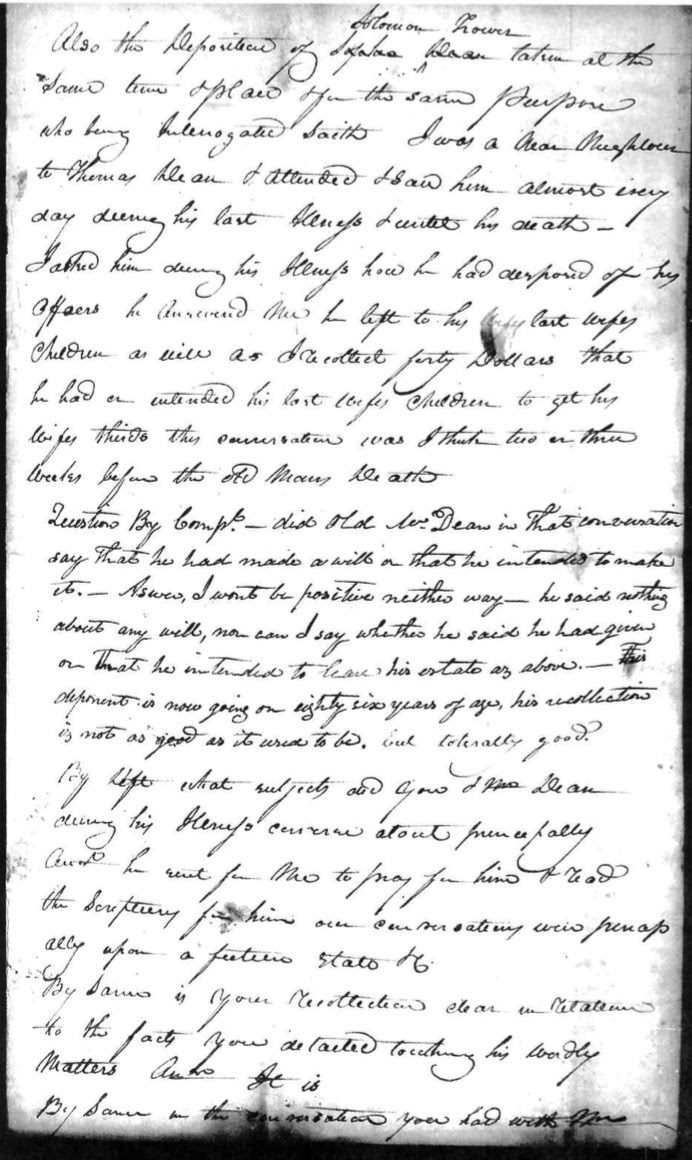 Solomon Trower
Also the Deposition of Dean taken at the
Same time & place & for the same Purpose
who being Interrogated Saith I was a Near Neighbour
to Thomas Dean & attended & Saw him almost every
day during his last Illness & until his death –
I asked him during his Illness how he had desposed of his
affaers he answered Me he left to his last wifes
Children as well as I recollect forty Dollars that
he had or intended his last wifes Children to get his
Wifes thirds this conversation was I think two or three
Weeks before the old Mans Death
Question By Compt. – did Old Mr. Dean in that conversation
say that he had made a will or that he intended to make
it. – Aswer, I wont be positive neither way – he said nothing
about any will, nor can I say whether he said he had given
or that he intended to leave his estate as above. – This
deponent is now going on eighty six years of age, his recollection
is not as good as it used to be. but tolerally good.
By Deft what subjects did you & Mr Dean
during his Illness converse about principally
Answr he sent for Me to pray for him & read
the Scriptures for him our conversations were princap
ally upon a future State &c
By Same is your recollection clear in relation
to the facts you detailed touching his wordly
Matters Answ It is
By Same in the conversation you had with Mr